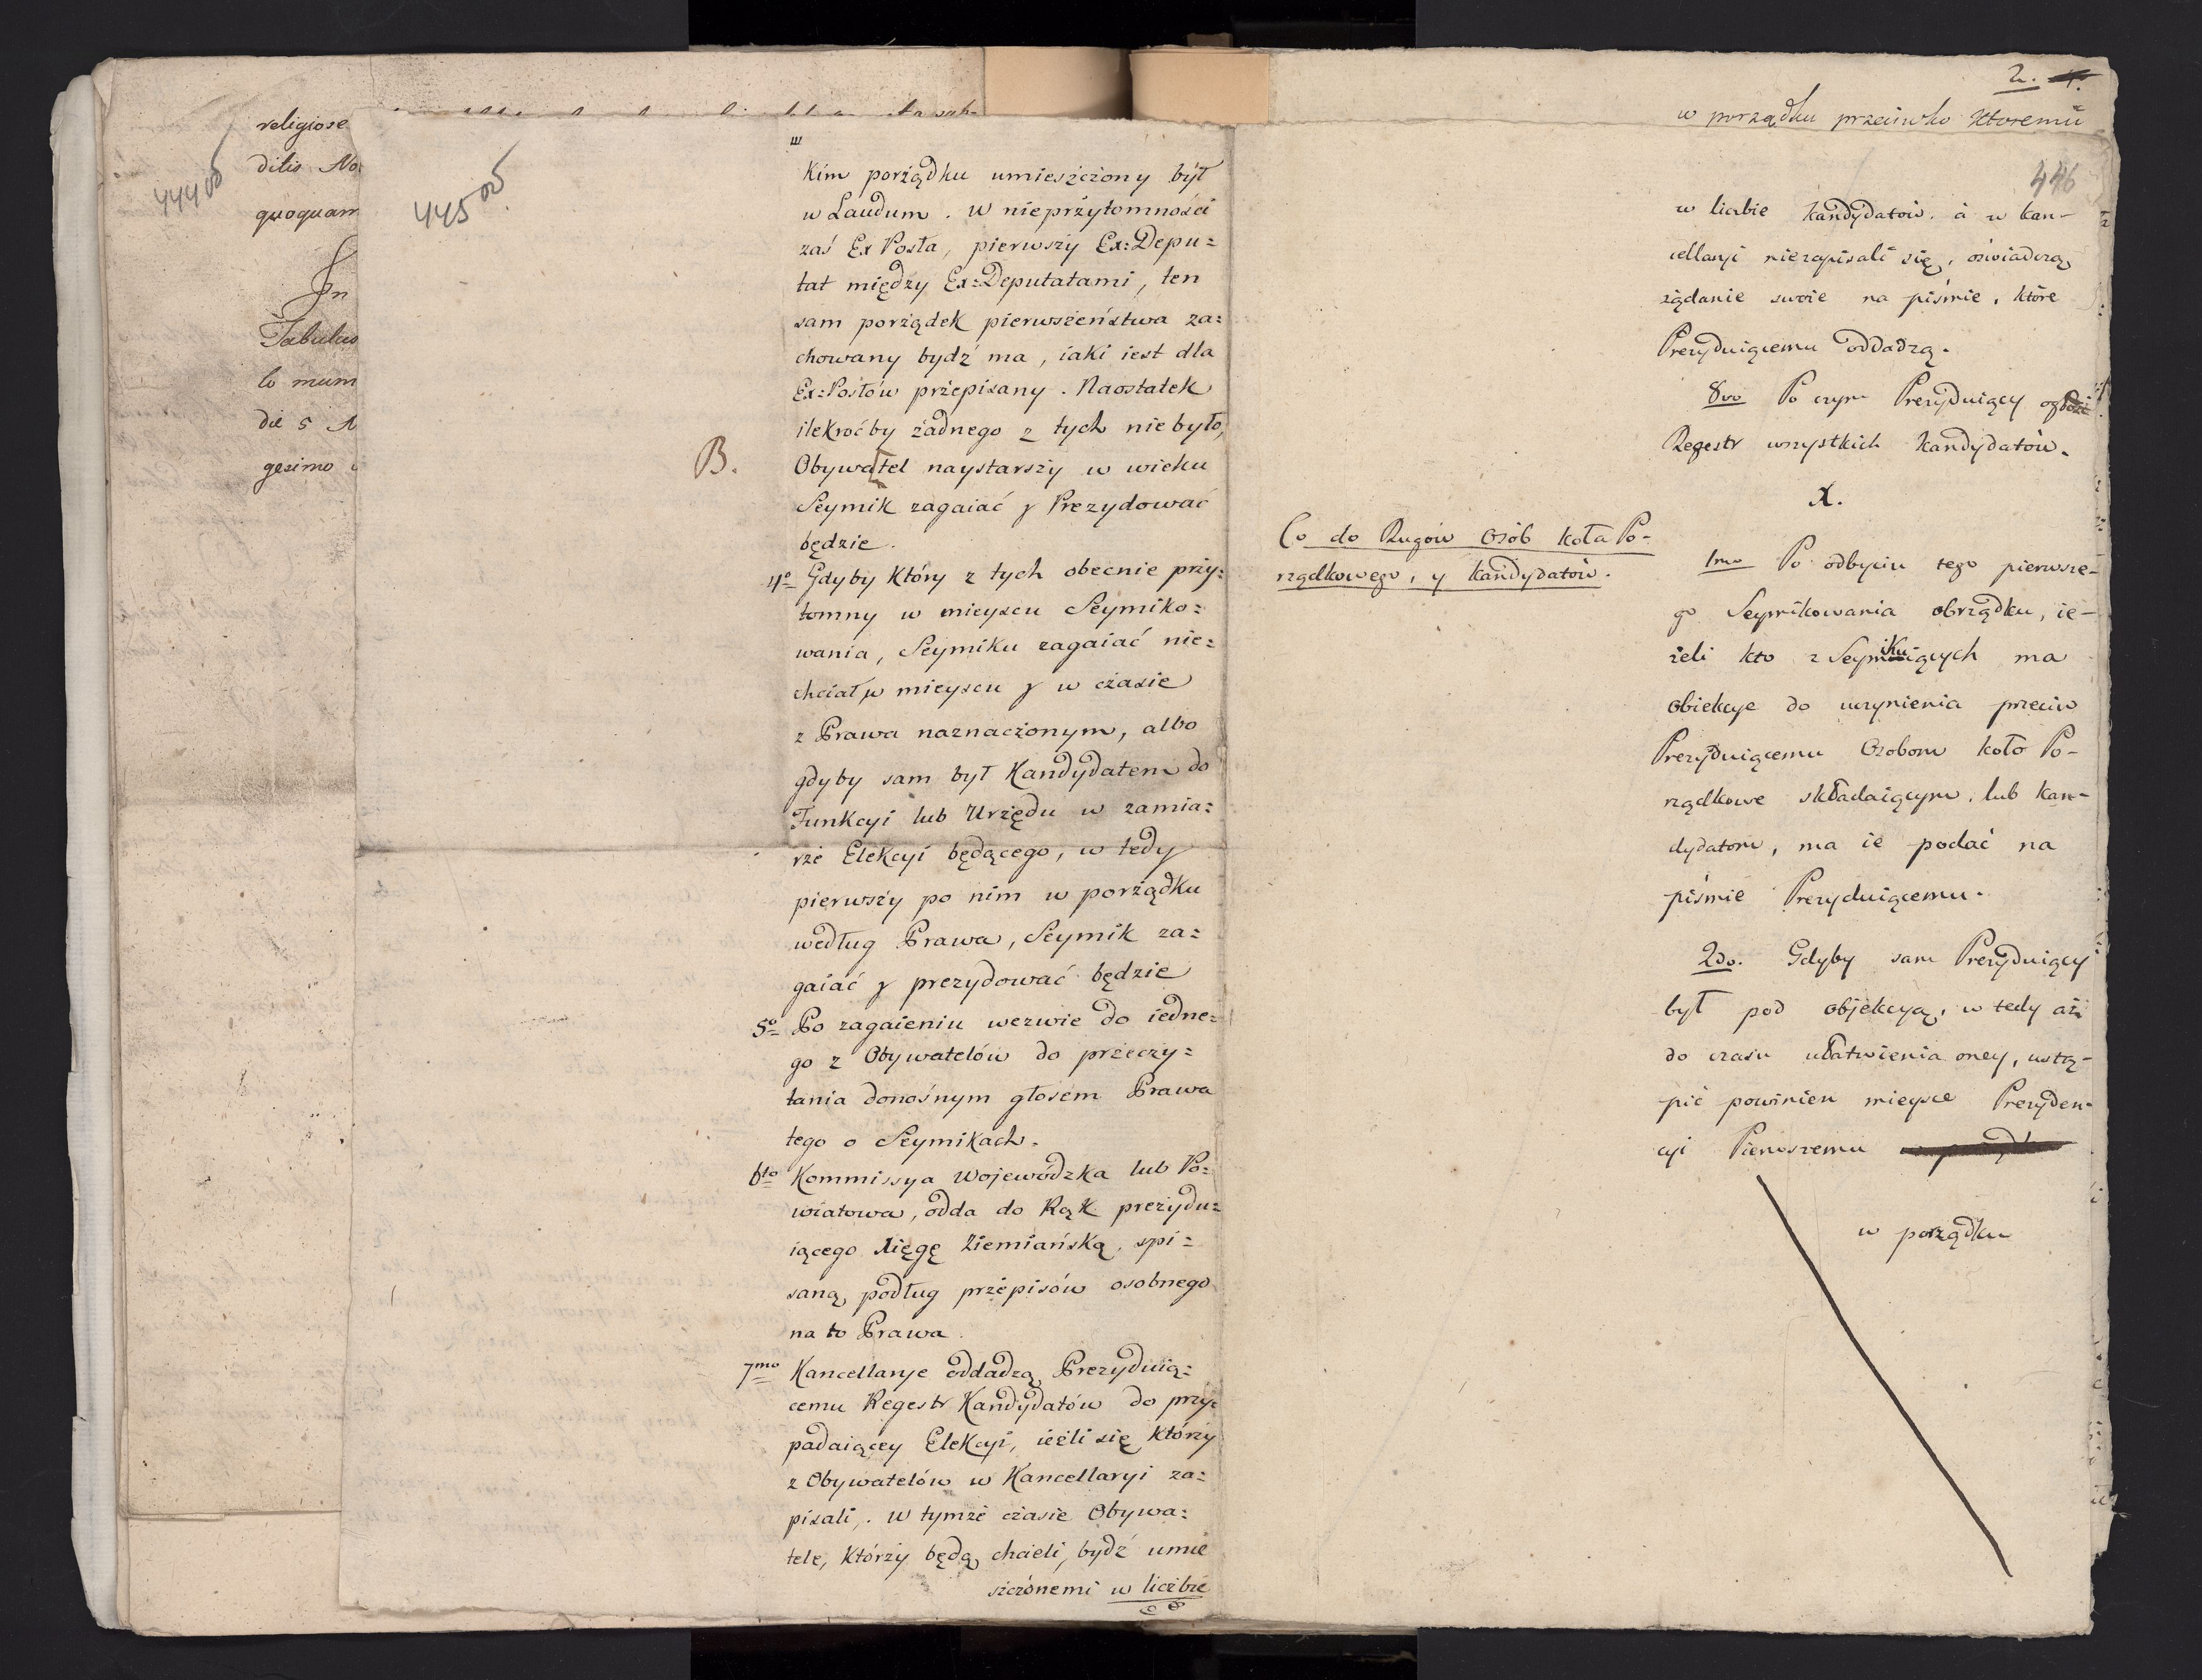 444 v
religiose
ditis No
quoquam
In
Tabulas
lo mum
die 5 A
gesimo
445 v
kim porządku umieszczony był
w Laudum. W nieprzytomności
zaś Ex Posła, pierwszy Ex=Depu=
tat między Ex=Deputatami, ten
sam porządek pierwszeństwa za=
chowany bydź ma, iaki iest dla
Ex=Posłów przepisany. Naostatek
ilekroćby żadnego z tych nie było,
B.
Obywatel naystarszy w wieku
Seymik zagaiać y Prezydować
będzie.
4o Gdyby Który z tych obecnie przy=
tomny w mieyscu Seymiko=
wania, Seymiku zagaiać nie=
chciał, w mieyscu y w czasie
z Prawa naznaczonym, albo
gdyby sam był Kandydatem do
Funkcyi lub Urzędu w zamia=
rze Elekcyi będącego, w tedy
pierwszy po nim w porządku
według Prawa, Seymik za=
gaiać y prezydować będzie
5o Po zagaieniu wezwie do iedne=
go z Obywatelów do przeczy=
tania donośnym głosem Prawa
tego o Seymikach.
6to Kommissya Wojewódzka lub Po=
wiatowa, odda do Rąk prezydu=
iącego Xięgę Ziemiańską, spi=
saną podług przepisów osobnego
na to Prawa.
7mo Kancellarye oddadzą Prezyduią=
cemu Regestr Kandydatów do przy=
padaiącey Elekcyi, ieżli się Którzy
z Obywatelów w Kancellaryi za=
pisali,. W tymże czasie Obywa=
tele, Którzy będą chcieli, bydź umie
szczonemi w liczbie
2.
w porządku przeciwko Ktoremu
446
w liczbie Kandydatów, a w kan-
cellaryi niezapisali się, oświadczą
żądanie swoie na piśmie, które
Prezyduiącemu oddadzą.
8vo Po czym Prezyduiący ogłosi
Regestr wszystkich Kandydatów.
X.
Co do Rugów Osób koła Po-
rządkowego, y Kandydatów.
1mo Po odbyciu tego pierwsze-
go Seymikowania obrządku, ie-
żeli kto z Seymikuiących ma
obiekcye do uczynienia przeciw
Prezyduiącemu Osobom koło Po-
rządkowe składaiącym, lub kan-
dydatom, ma ie podać na
piśmie Prezyduiącemu.
2do. Gdyby sam Prezyduiący
był pod objekcyą, w tedy aż
do czasu ułatwienia oney, ustą-
pić powinien mieysce Prezyden-
cyi Pierwszemu
w porządku